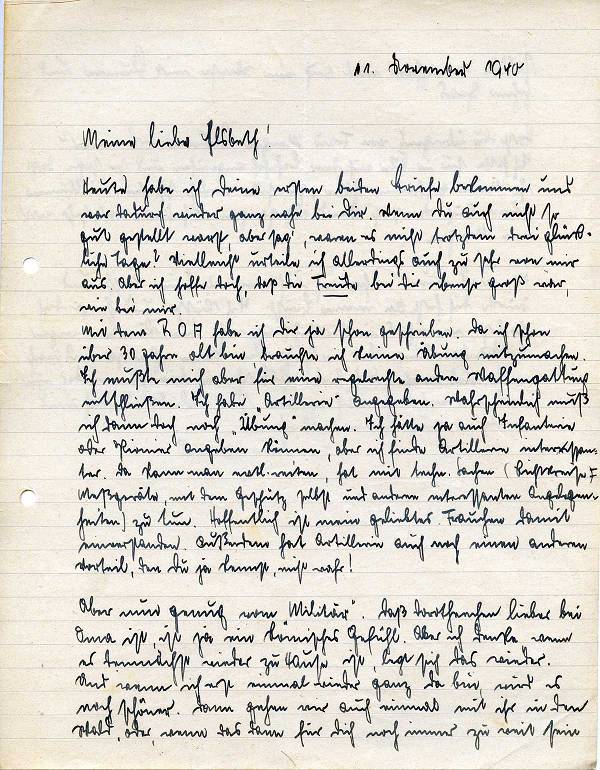 11. November 1940
Meine liebe Elsbeth!
Heute habe ich Deine ersten beiden Briefe bekommen und
war dadurch wieder ganz nahe bei Dir. Wenn Du auch nicht so
gut gestellt warst, aber sag', waren es nicht trotzdem drei glück-
liche Tage? Vielleicht urteile ich allerdings auch zu sehr von mir
aus. Aber ich hoffe doch, daß die Freude bei Dir ebenso groß war,
wie bei mir.
Mit dem ROA habe ich Dir ja schon geschrieben. Da ich schon
über 30 Jahre alt bin brauchte ich keine Übung mitzumachen.
Ich mußte mich aber für eine regelrechte andere Waffengattung
entschließen. Ich habe "Artillerie" angegeben. Wahrscheinlich muß
ich dann doch noch "Übung" machen. Ich hätte ja auch Infanterie
oder Pionier angeben können, aber ich finde Artillerie interessan-
ter. Da kann man evtl. reiten, hat mit techn. Sachen (
Meßgeräte, mit dem Geschütz selbst und anderen interessanten Angelegen-
heiten) zu tun. Hoffentlich ist mein geliebtes Frauchen damit
einverstanden. Außerdem hat Artillerie auch noch einen anderen
Vorteil, den Du ja kennst, nicht wahr!
Aber nun genug vom "Militär". Daß Dorotheechen lieber bei
Oma ist, ist ja ein komisches Gefühl. Aber ich denke wenn
es demnächst wieder zu Hause ist, legt sich das wieder.
Und wenn ich erst einmal wieder ganz da bin, wird es
noch schöner. Dann gehen wir auch einmal mit ihr in den
Wald, oder, wenn das dann für Dich noch immer zu weit sein